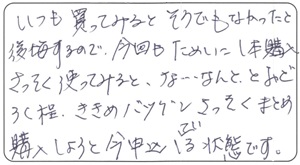 いつも買ってみると そうでもなかったと
後悔するので、今回も ためしに1本購入
さっそく使ってみると、な…なんと、とおど
ろく程、ききめバツグン さっそくまとめ
購入しようと今申込 状態です。